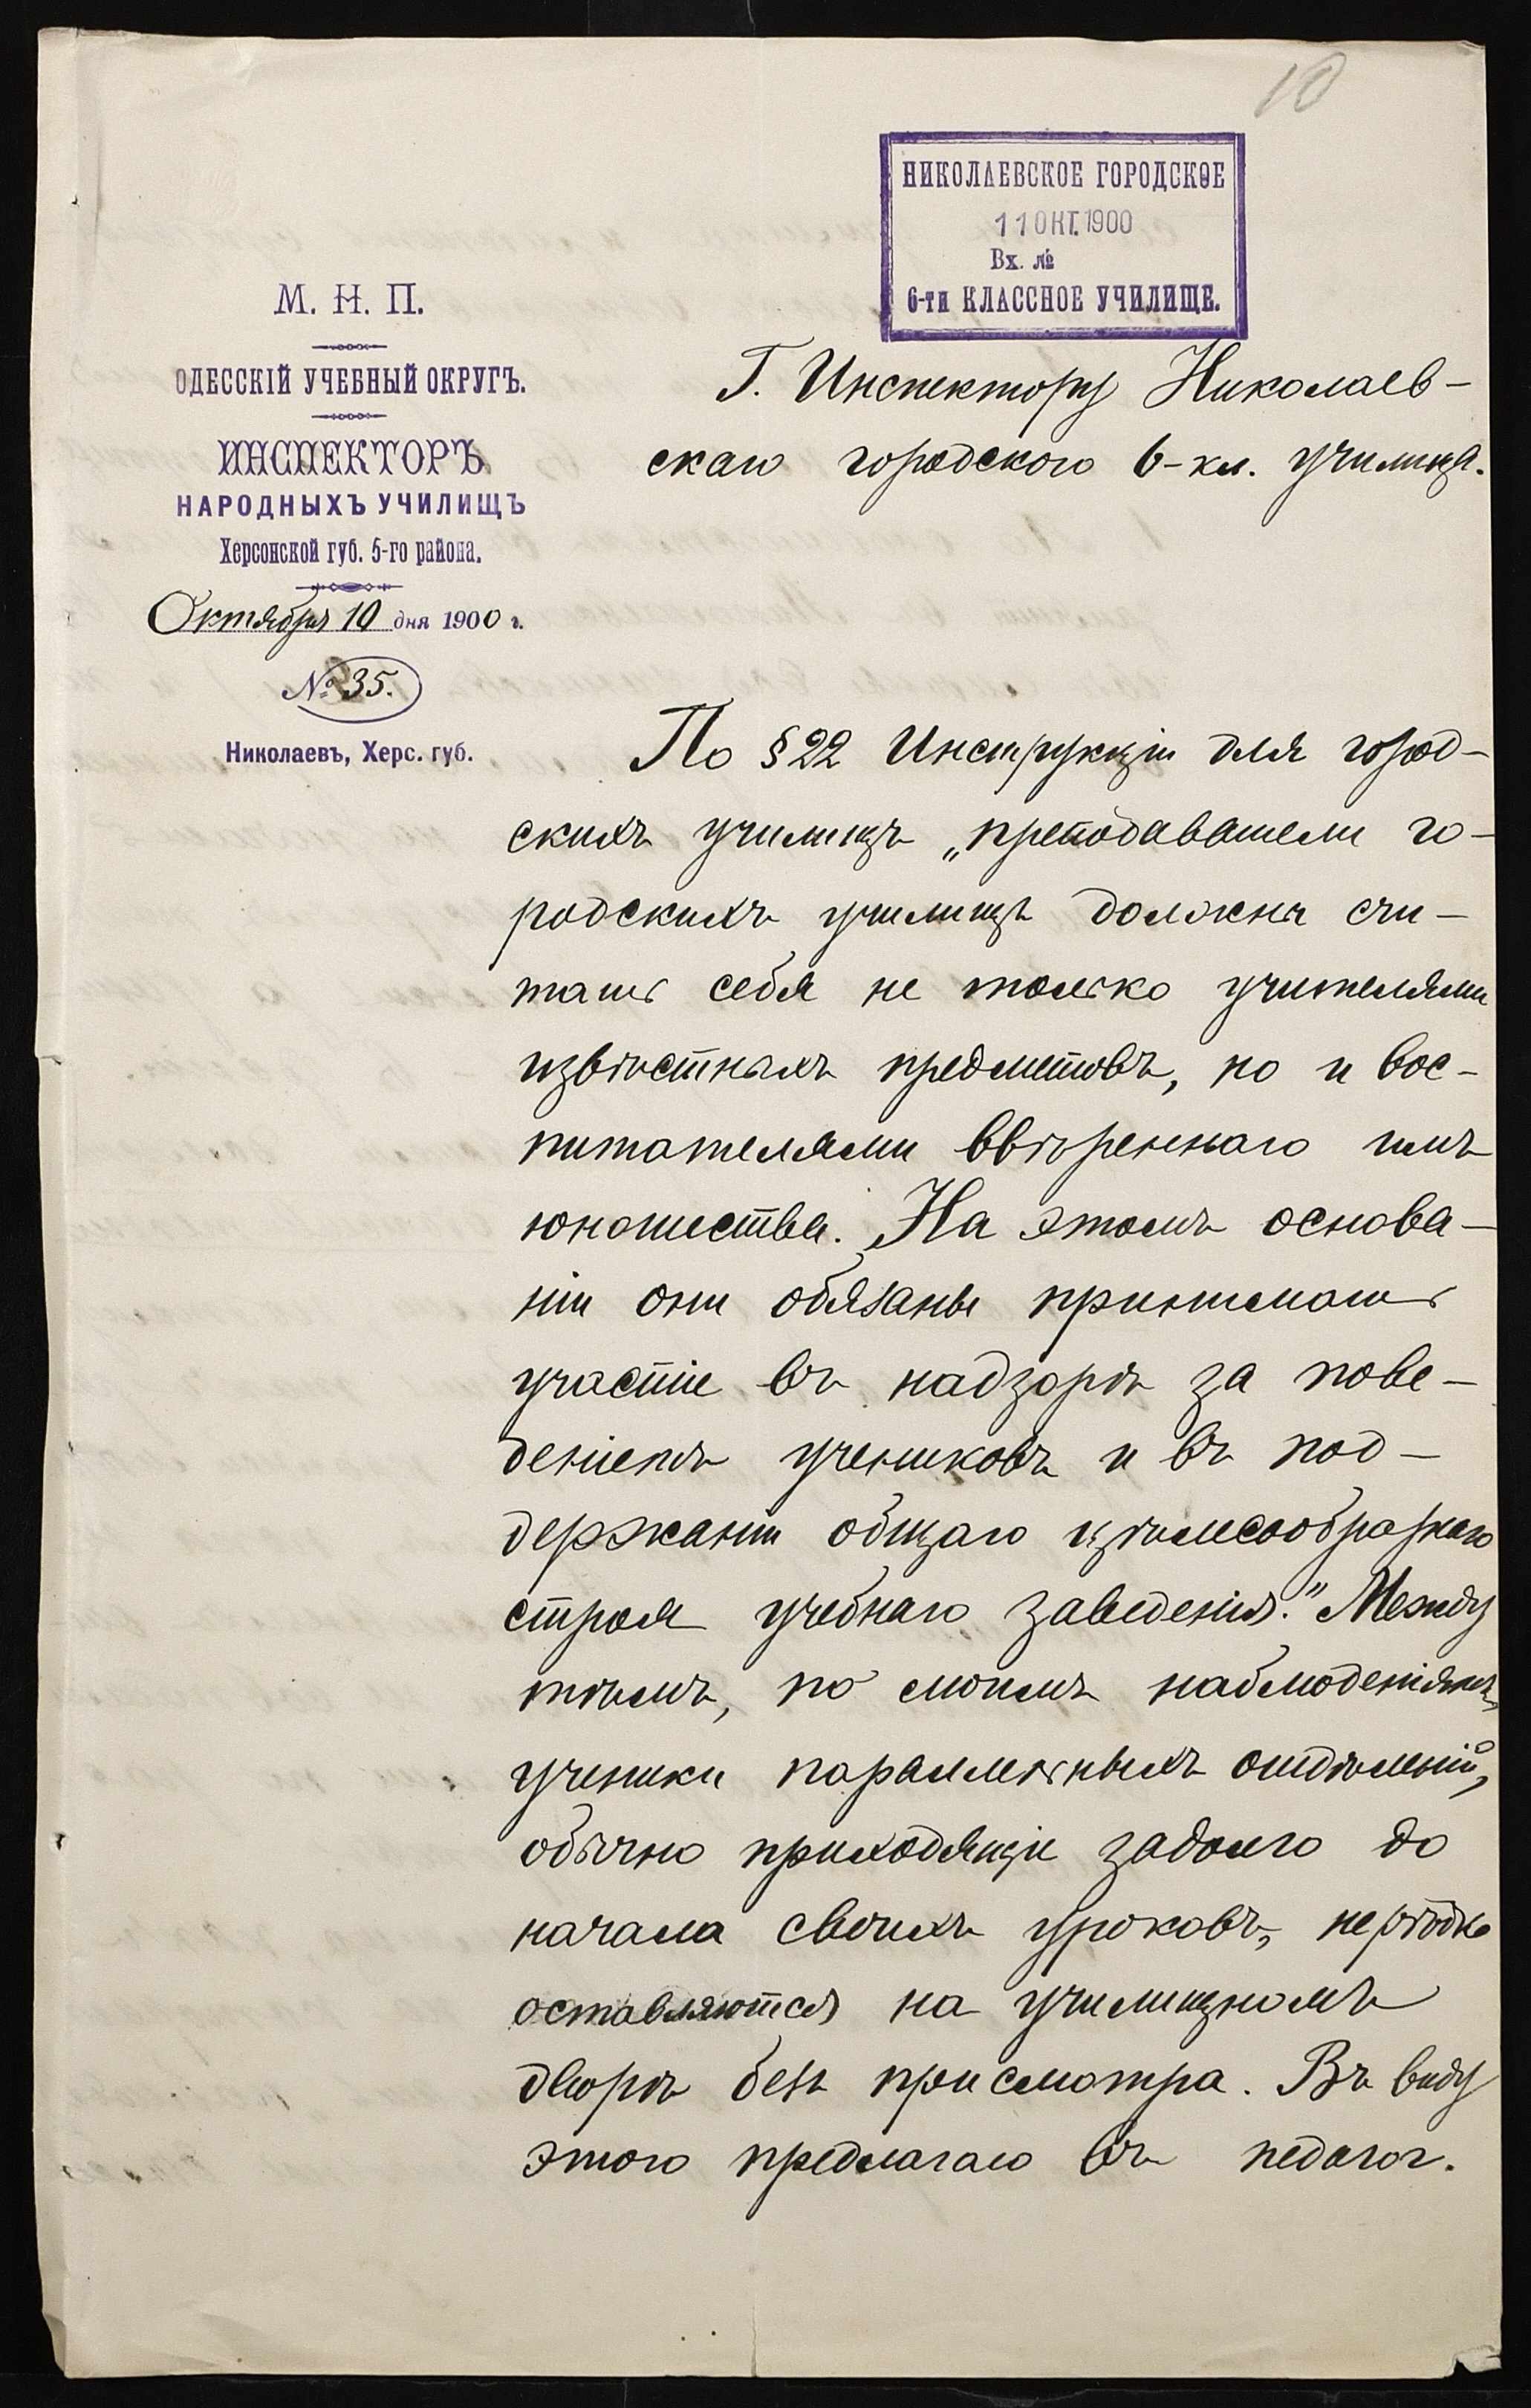 10
НИКОЛАЕВСКОЕ ГОРОДСКОЕ
11 ОКТ. 1900
Вх. №
6-ти КЛАССНОЕ УЧИЛИЩЕ.
М. Н. П.
ОДЕССКІЙ УЧЕБНЫЙ ОКРУГЪ.
ИНСПЕКТОРЪ
НАРОДНЫХЪ УЧИЛИЩЪ
Херсонской губ. 5-го района.
Октября 10 дня 1900 г.
№ 35.
Николаевъ, Херс. губ.
Г. Инспектору Николаев-
скаго городского 6-кл. училища.
По § 22 Инструкціи для город-
скихъ училищъ „преподаватели го-
родскихъ училищъ должны счи-
тать себя не только учителями
извѣстныхъ предметовъ, но и вос-
питателями ввѣреннаго имъ
юношества. На этомъ основа-
ніи они обязаны принимать
участіе въ надзорѣ за пове-
деніемъ учениковъ и въ под-
держаніи общаго цѣлесообразнаго
строя учебнаго заведенія." Между
тѣмъ, по моимъ наблюденіямъ,
ученики параллельныхъ отдѣленій,
обычно приходящіе задолго до
начала своихъ уроковъ, нерѣдко
оставляются на училищномъ
дворѣ безъ присмотра. Въ виду
этого предлагаю въ педагог.